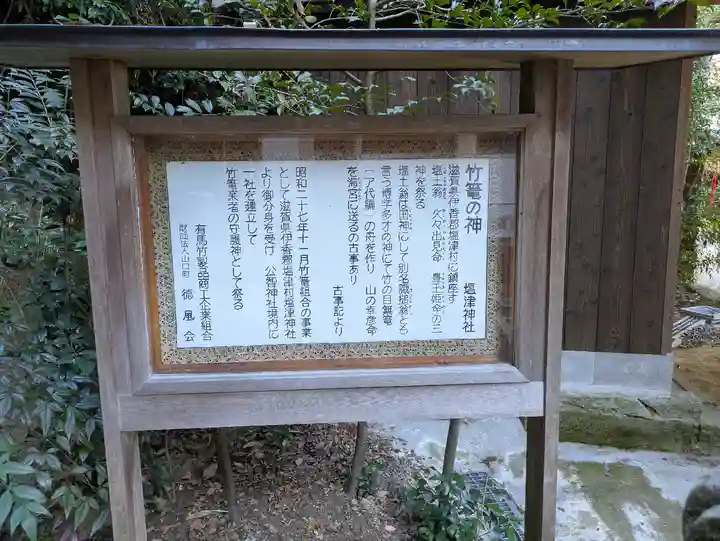 竹篭の神　塩津神社
滋賀県伊香郡塩津村に鎮座す
塩土翁　火々出見命　豊玉姫命の三
神を祭る
塩土翁は国神にして別名識槌翁とも
言う博学多才の神にて竹の目無篭
（一ア代編）の舟を作り　山の幸彦命
を海宮に送るの古事あり
古事記より
昭和二十七年十一月竹篭組合の事業
として滋賀県伊香郡塩津村塩津神社
より御分身を受け　公智神社境内に
一社を建立して
竹篭業者の守護神として祭る
有馬竹製品商工大企業組合
財団法人山口町　徳風会